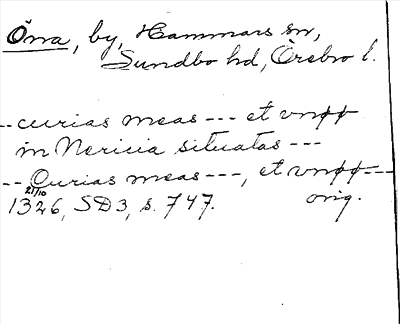 Öna, by, Hammars sn,
Sundbo hd, Örebro l.
-- curias meas --- et
in Nericia situatas ---
-- Curias meas ---, et
21/10
1326, SD3, s. 747. orig.